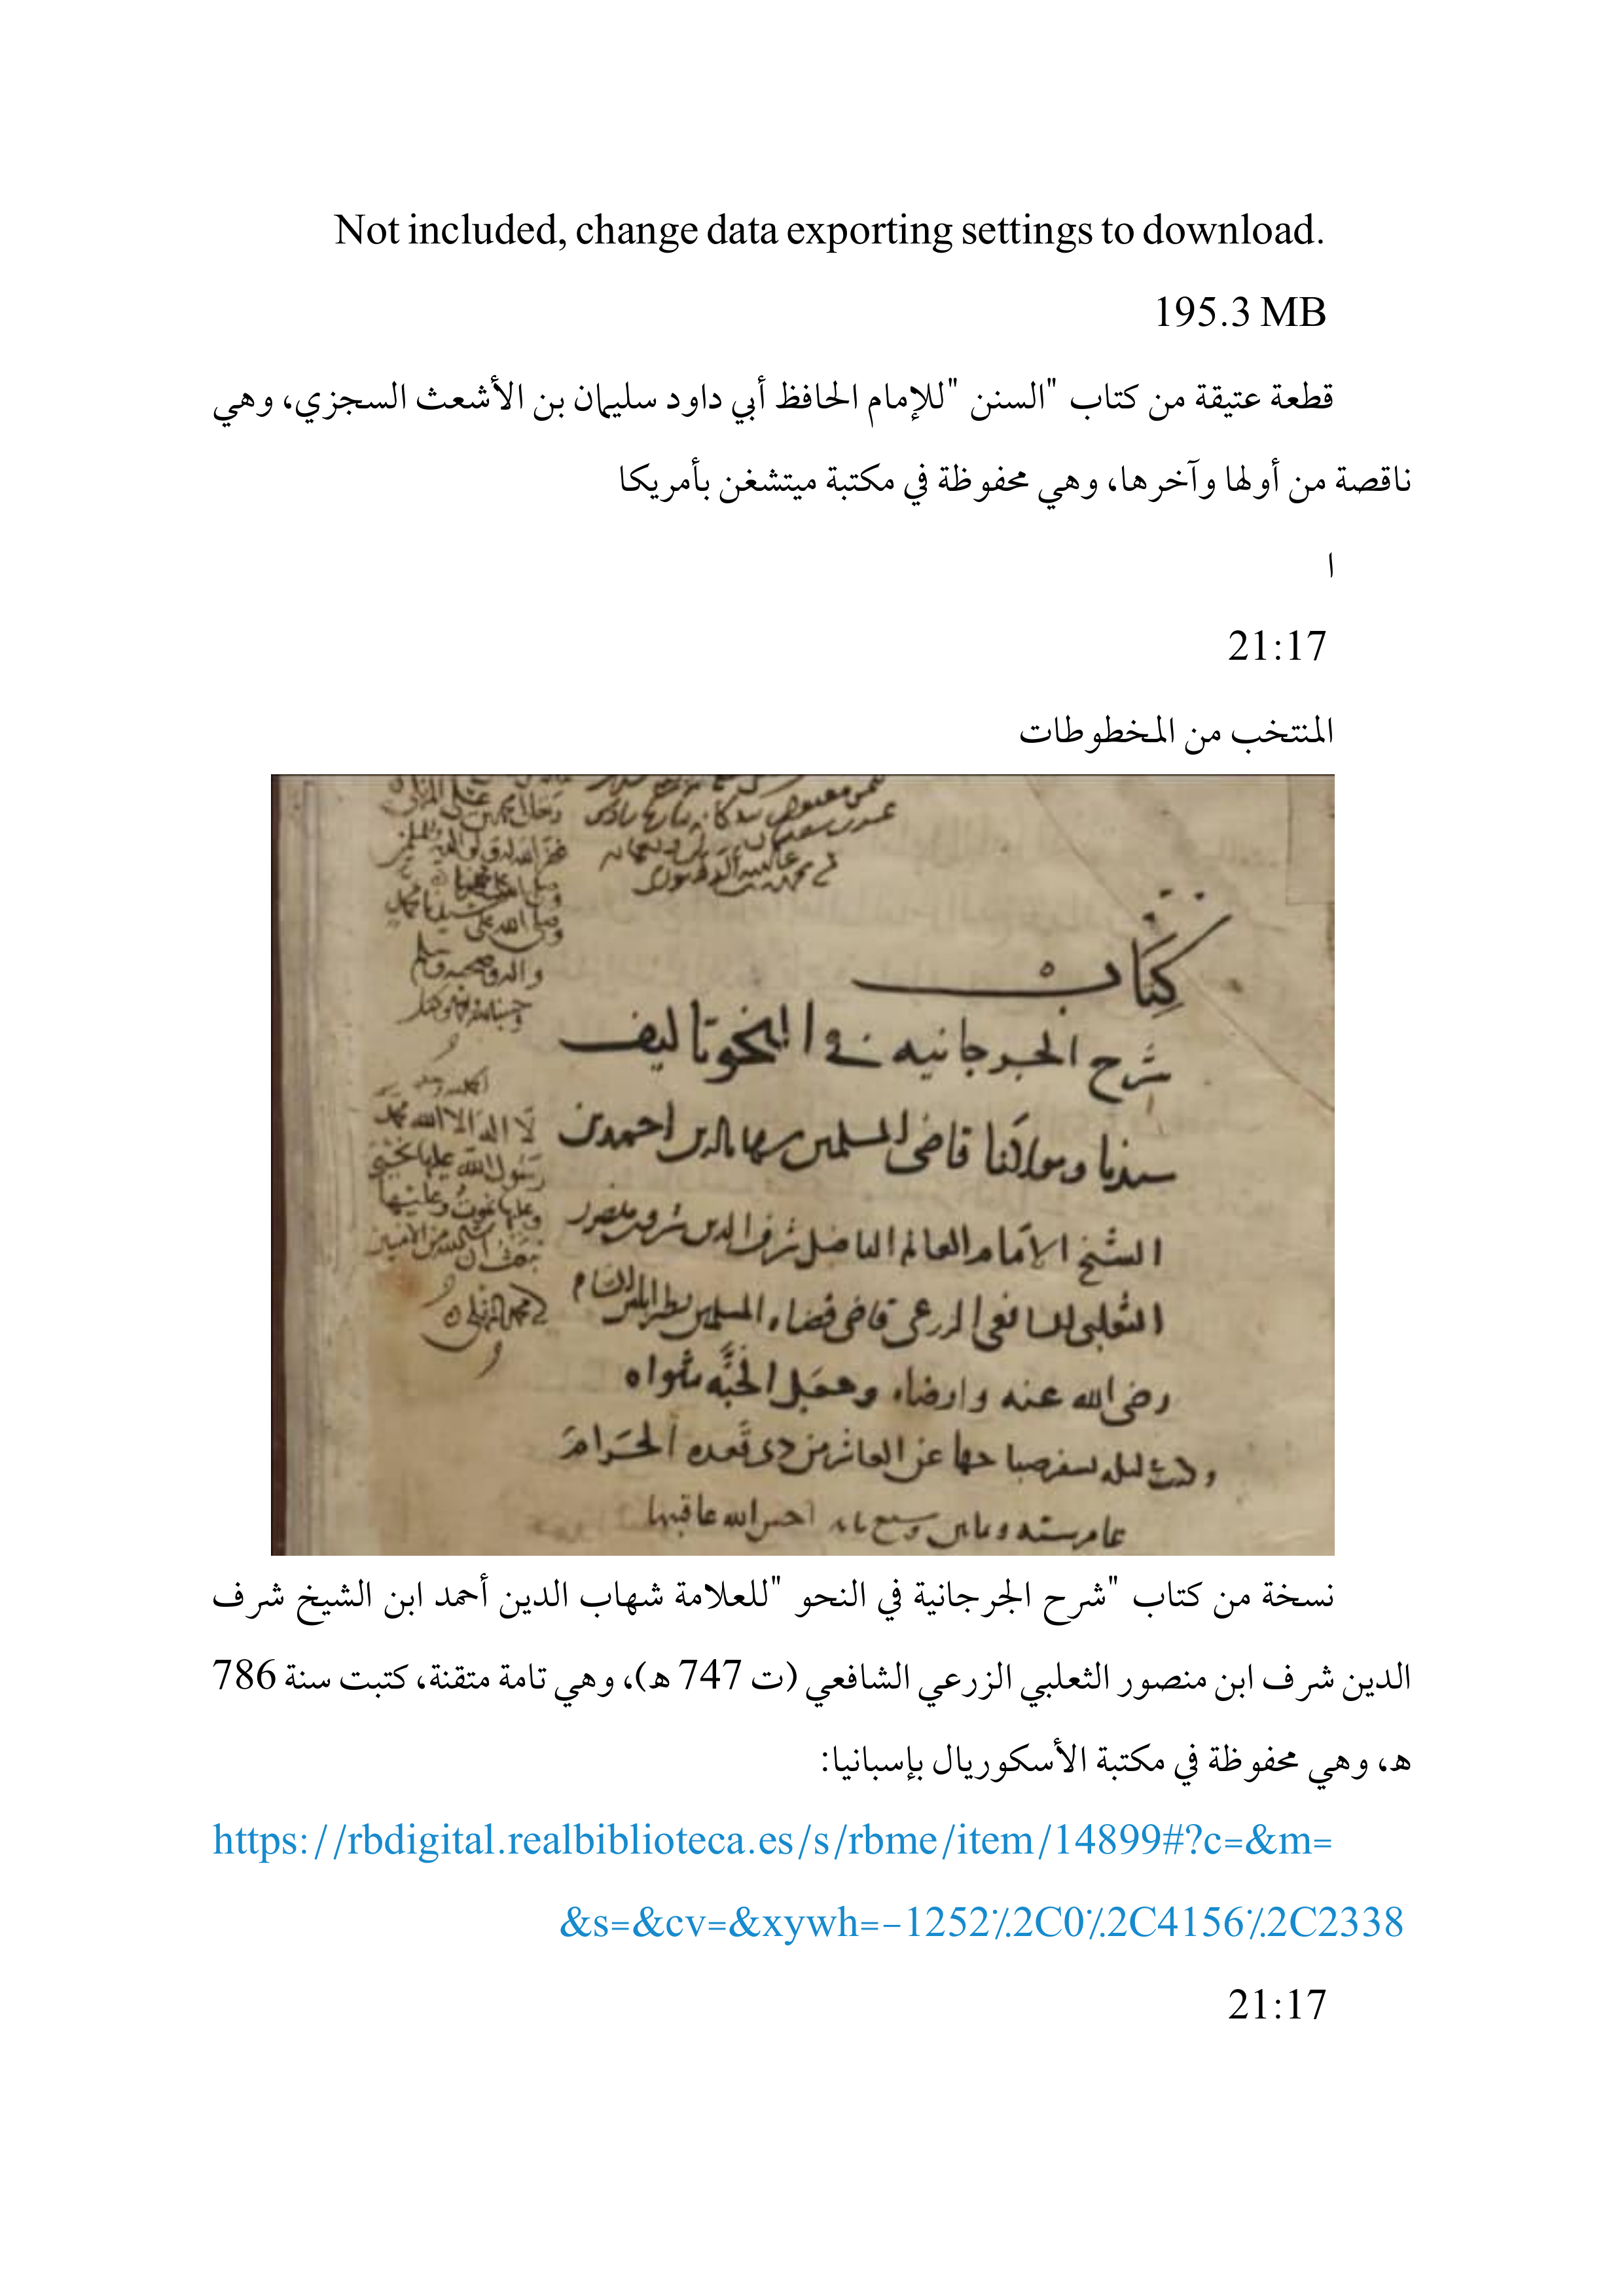 Not included, change data exporting settings to download.
195.3 MB
قطعة عتيقة من كتاب "السنن "للإمام الحافظ أبي داود سليمان بن الأشعث السجزي، وهي
ناقصة من أولها وآخرها، وهي محفوظة في مكتبة ميتشغن بأمريكا
ا
21:17
المنتخب من المخطوطات
كتاب
شرح الجرجانيه في النحو تاليف
سيدنا ومولانا قاضي المسلمين شهاب الدين احمد بن
الشيخ الامام العالم الفاضل شرف الدين شرف بن منصور
الثعلبي الشافعي الزرعي قاضي قضاه المسلمين بطرابلس الشام
رضى الله عنه وارضاه وجعل الجنه مثواه
صباحها عن العاشر من ذي قعده الحرام
عام سته وثمانين وسبع مايه احسن الله عاقبتها
لا اله الا الله محمد
رسول الله عليها نحيى
وعليها نموت وعليها
نبعث ان شا الله من الامنين
نسخة من كتاب "شرح الجرجانية في النحو "للعلامة شهاب الدين أحمد ابن الشيخ شرف
الدين شرف ابن منصور الثعلبي الزرعي الشافعي (ت 747 ه)، وهي تامة متقنة، كتبت سنة 786
ه، وهي محفوظة في مكتبة الأسكوريال بإسبانيا:
https://rbdigital.realbiblioteca.es/s/rbme/item/14899#?c=&m=
&s=&cv=&xywh=-1252%2C0%2C4156%2C2338
21:17